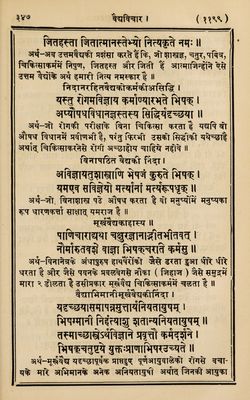 ३४७ वैद्यविचार । (११९९)
जितहस्ता जितात्मानस्तेभ्यो नित्यकृते नमः ॥
अर्थ-अब उत्तमवैद्यकी प्रशंसा करते हैंकि, जो शास्त्रज्ञ, चतुर, पवित्र,
चिकित्साकर्ममें निपुण, जितहस्त और जिती हैं आत्माजिन्होंने ऐसे
उत्तम वैद्योंके अर्थ हमारी नित्य नमस्कार है ॥
निदानरहितवैद्यकोकर्मकीअसिद्धि ।
यस्तु रोगमविज्ञाय कर्माण्यारभते भिषक् ।
अप्यौषधविधानज्ञस्तस्य सिद्धिर्यदृच्छया ॥
अर्थ-जो रोगकी परीक्षाके विना चिकित्सा करता है यद्यपि वो
औषध विधानमें प्रवीणभी है, परंतु तिरभी उसको सिद्धीकी यथेच्छाहै
अर्थात् चिकित्साकरनेसे रोगी अच्छाहोना चाहिये नहोवे ॥
विनापठित वैद्यकी निंदा ।
अविज्ञायतुशास्त्राणि भेषजं कुरुते भिषक् ।
यमएव सविज्ञेयो मर्त्यानां मर्त्यरूपधृक् ॥
अर्थ-जो, विनाशास्त्र पढे औषध करता है वो मनुष्योंमें मनुष्यका
रूप धारणकर्त्ता साक्षात् यमराज है ॥
मूर्खवैद्यकाहास्य ॥
पाणिचाराद्यथा चक्षुरज्ञानाद्भीतभीतवत् ।
नौर्मारुतवशे वाज्ञा भिषक्चरति कर्मसु ॥
अर्थ-विनानेत्रके अंधापुरुष हाथपैरोंको जैसे डरता हुआ धीरे धीरे
धरता है और जैसे पवनके प्रबलवेगसे नौका ( जिहाज ) जैसे समुद्रमें
मारा २ डोलता है उसीप्रकार मूर्खवैद्य चिकित्साकर्ममें चलता है ॥
वैद्याभिमानीमूर्खवैद्यकीनिंदा ।
यदृच्छयासमापन्नमुत्तार्यनियतायुषम् ॥
भिषग्मानी निहंत्याशु शतान्यनियतायुषम् ॥
तस्माच्छास्त्रेऽर्थविज्ञाने प्रवृत्तौ कर्मदर्शने ।
भिषक्चतुष्टये युक्तःप्राणाभिषरउच्यते ॥
अर्थ-मूर्खवैद्य यदृच्छापूर्वक पूर्ण आयुवालेको रोगसे बचा-
यके मारे अभिमानके अनेक अनियतायुषी अर्थात् जिनकी आयुका